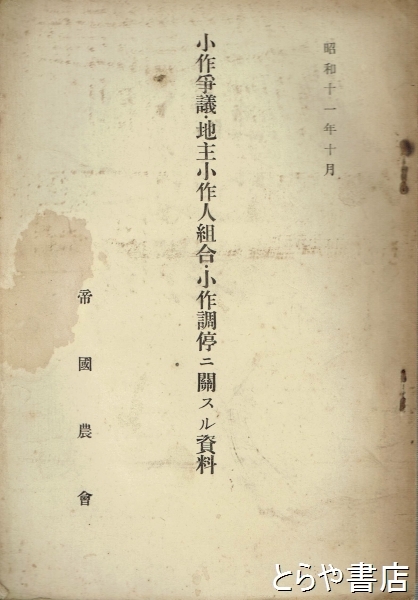 昭和十一年十月
小作爭議・地主小作人組合・小作調停ニ關スル資料
帝國農會
とらや書店